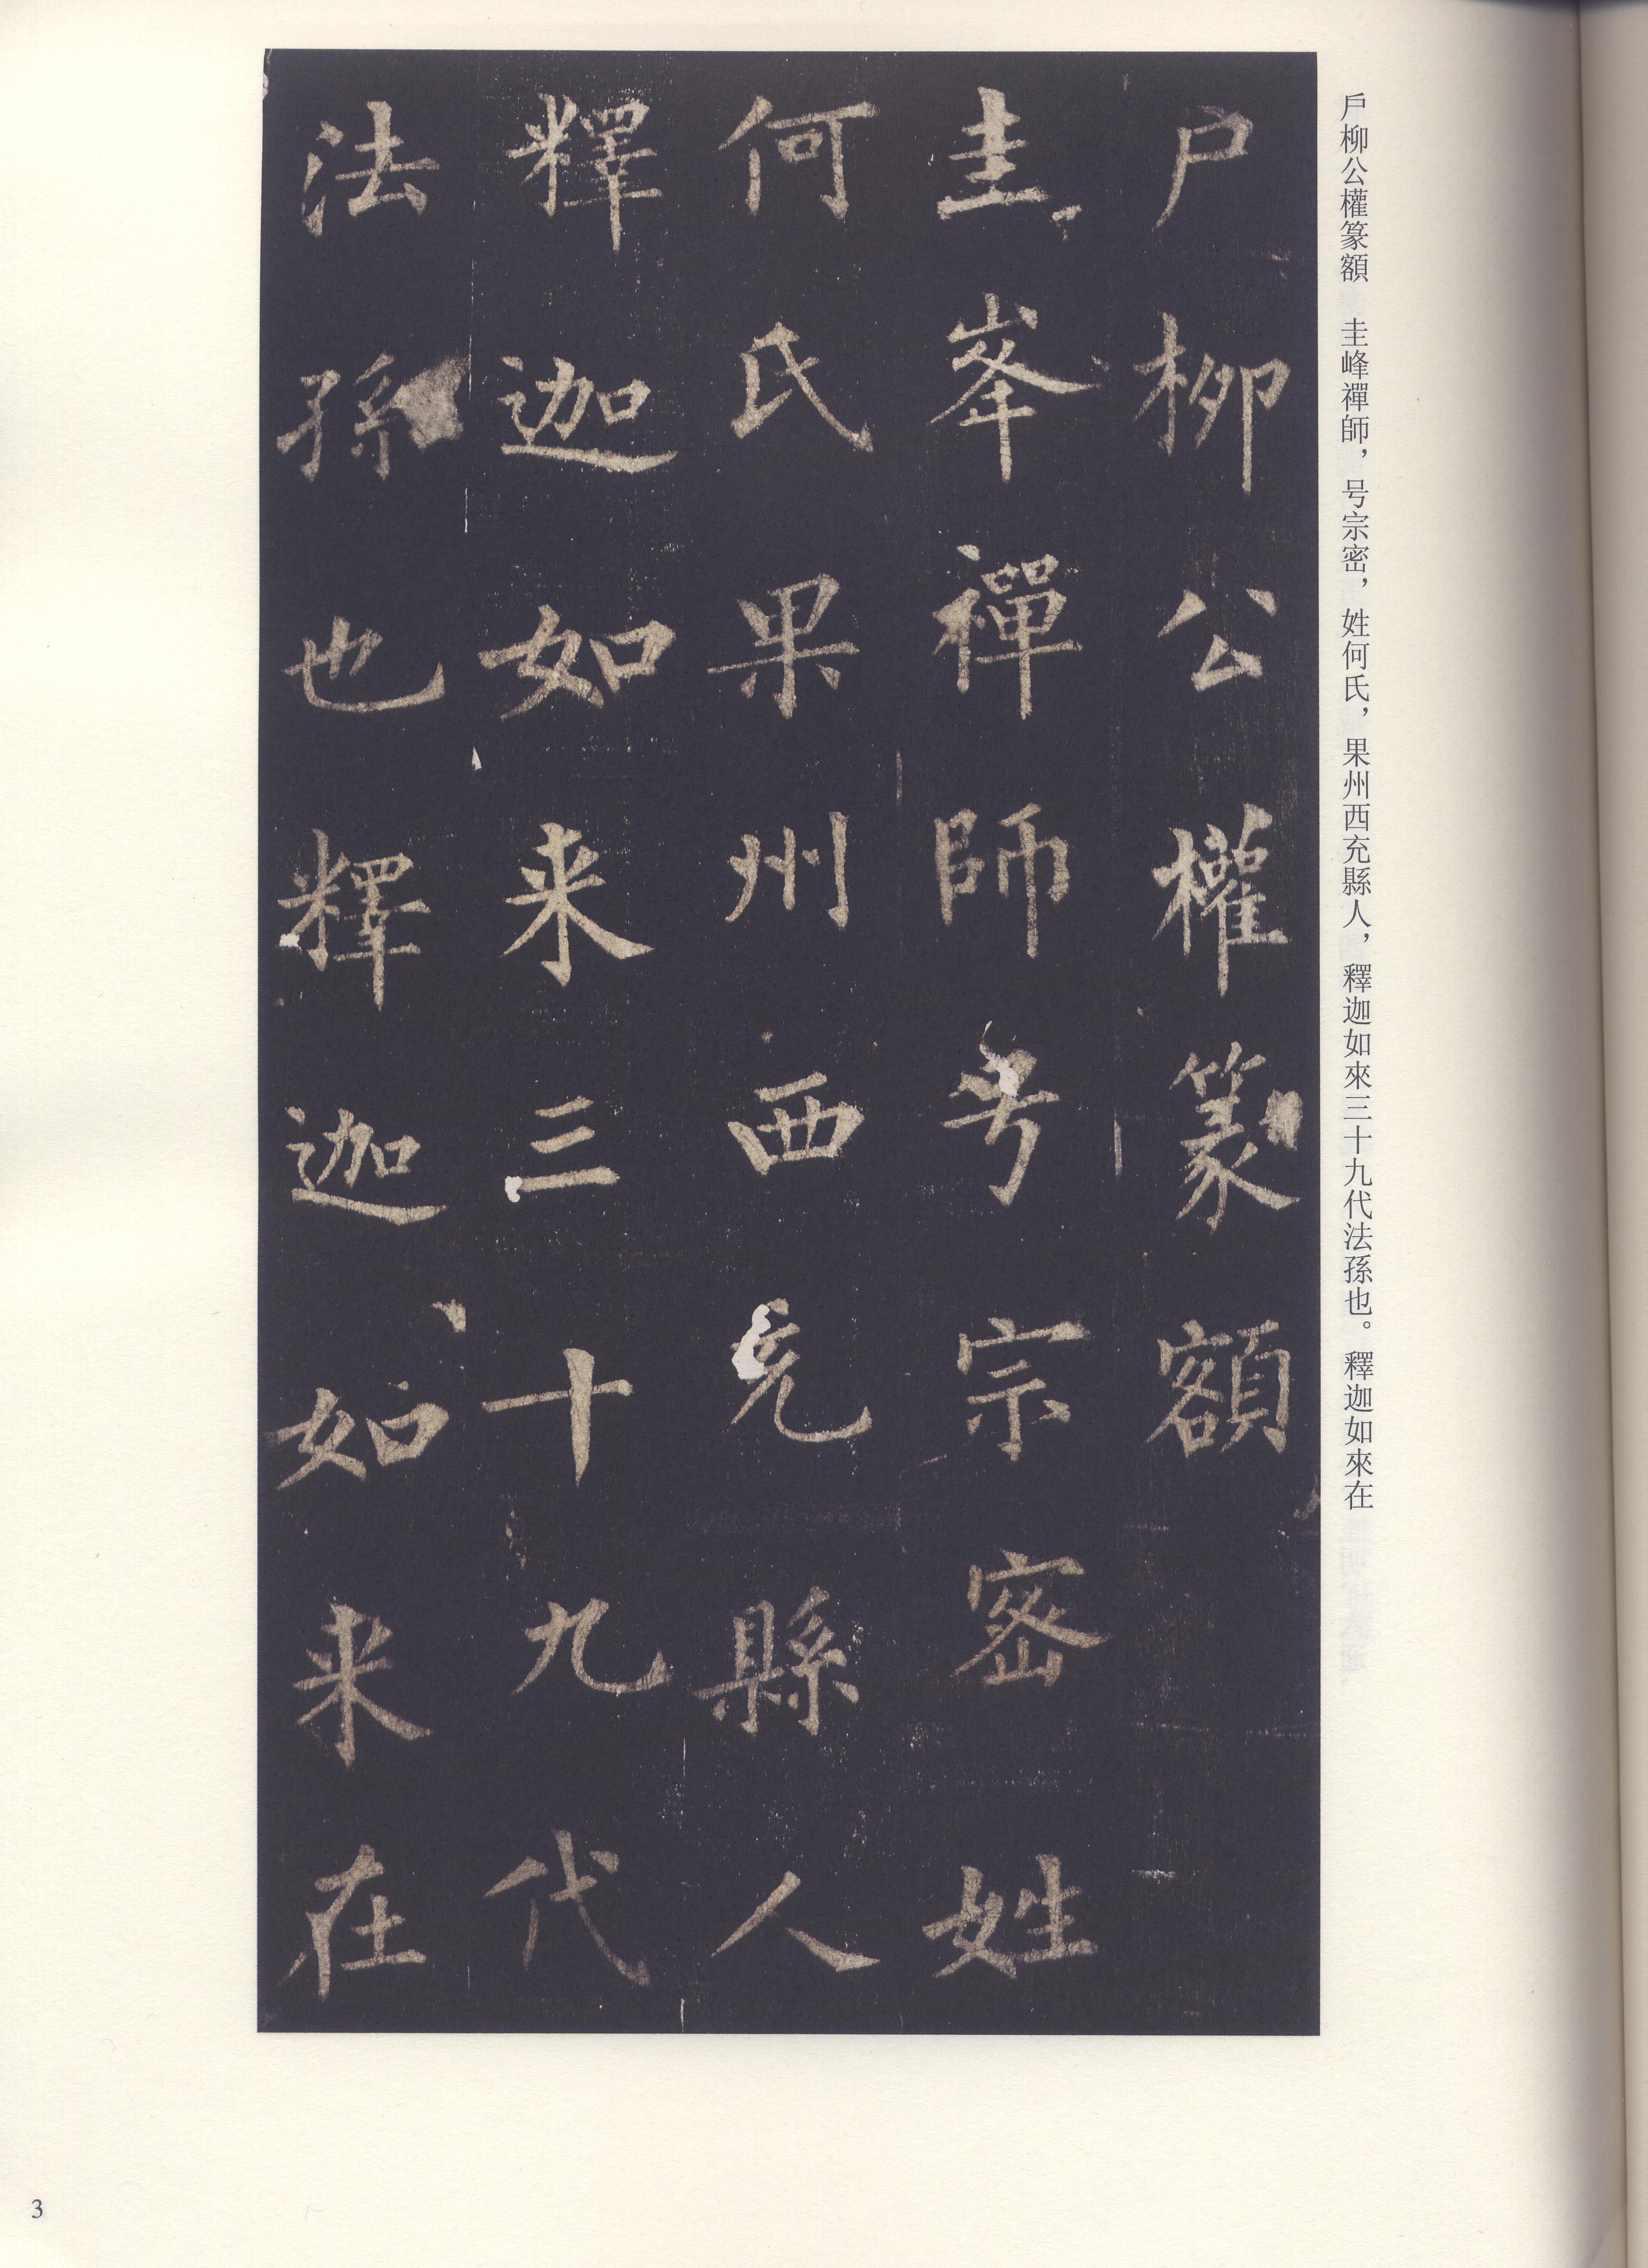 戶柳公權篆額　圭峰禪師，号宗密，姓何氏，果州西充縣人，釋迦如來三十九代法孫也。釋迦如來在
户柳公權篆額
圭峯禪師号宗密姓
何氏果州西充縣人
釋迦如来三十九代
法孫也釋迦如来在
3